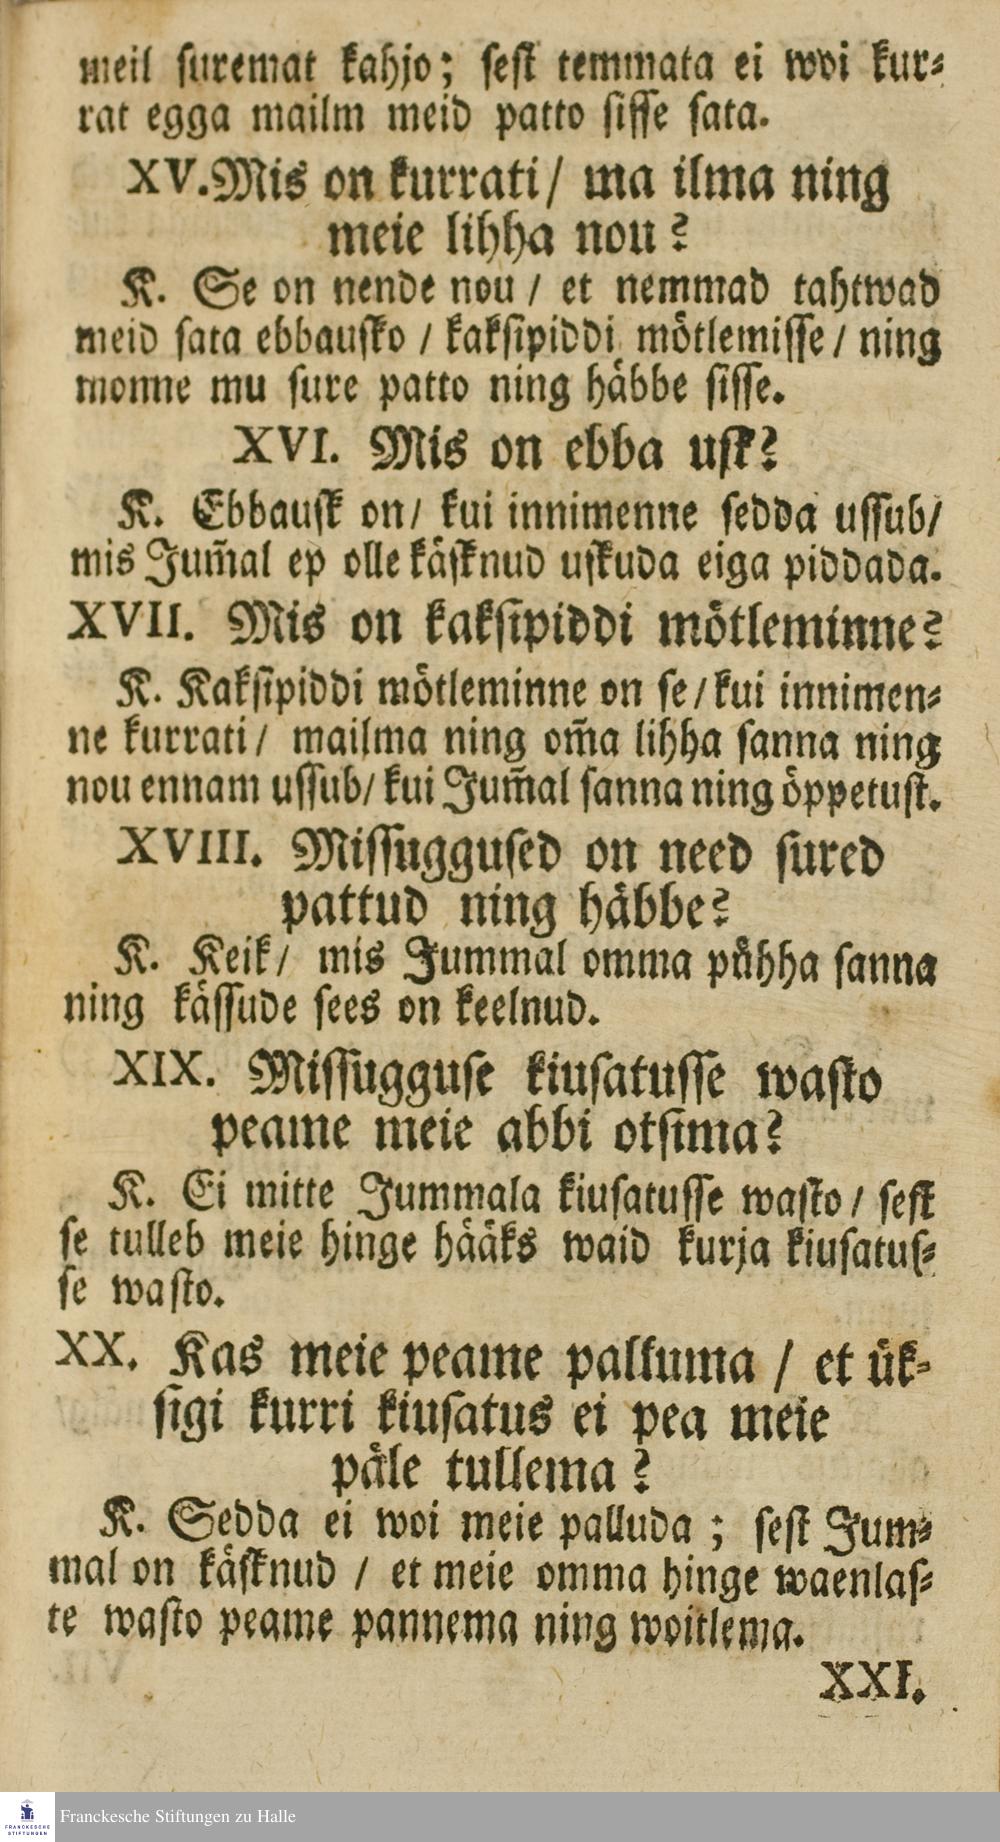 meil suremat kahjo; sest temmata ei woi kur-
rat egga mailm meid patto sisse sata.
XV. Mis on kurrati/ ma ilma ning
meie lihha nou?
K. Se on nende nou / et nemmad tahtwad
meid sata ebbausko / kaksipiddi mötlemisse / ning
monne mu sure patto ning häbbe sisse.
XVI. Mis on ebba usk?
K. Ebbausk on/ kui innimenne sedda ussub/
mis Jum̃al ep olle käsknud uskuda eiga piddada.
XVII. Mis on kaksipiddi mötleminne?
K. Kaksipiddi mötleminne on se / kui innimen-
ne kurrati / mailma ning om̃a lihha sanna ning
nou ennam ussub/ kui Jum̃al sanna ning öppetust.
XVIII. Missuggused on need sured
pattud ning häbbe?
K. Keik/ mis Jummal omma pühha sanna
ning kässude sees on keelnud.
XIX. Missugguse kiusatusse wasto
peame meie abbi otsima?
K. Ei mitte Jummala kiusatusse wasto / sest
se tulleb meie hinge hääks waid kurja kiusatus-
se wasto.
XX. Kas meie peame palluma / et ük-
sigi kurri kiusatus ei pea meie
päle tullema?
K. Sedda ei woi meie palluda ; sest Jum-
mal on käsknud / et meie omma hinge waenlas-
te wasto peame pannema ning woitlema.
XXI.
Franckesche Stiftungen zu Halle
FRANCKESCHE
STIFTUNGEN